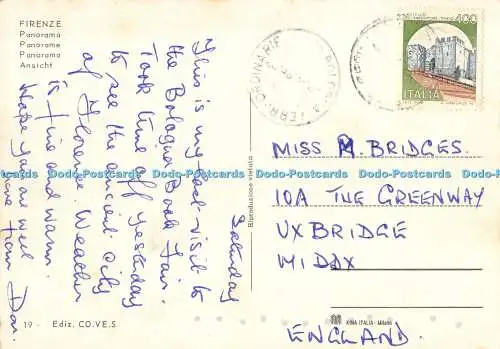 FIRENZE
Panorama
Panorame
Panorama
Ansicht
Saturday
This is my last visit to
the Bologna Book Fair.
Took time off yesterday
to see the ancient city
of Florence. Weather
is fine and warm.
Hope you are well
Love from Don.
19 - Ediz. CO.VE.S
Riproduzione vietata
KINA ITALIA - Milano
BOLOGNA FERR. ORDINARIE
400
ITALIA
MISS M. BRIDGES.
10A THE GREENWAY
UXBRIDGE
MIDDX
ENGLAND.
Dodo-Postcards Dodo-Postcards Dodo-Postcards Dodo-Postcards Dodo-Postcards
Dodo-Postcards Dodo-Postcards Dodo-Postcards Dodo-Postcards Dodo-Postcards